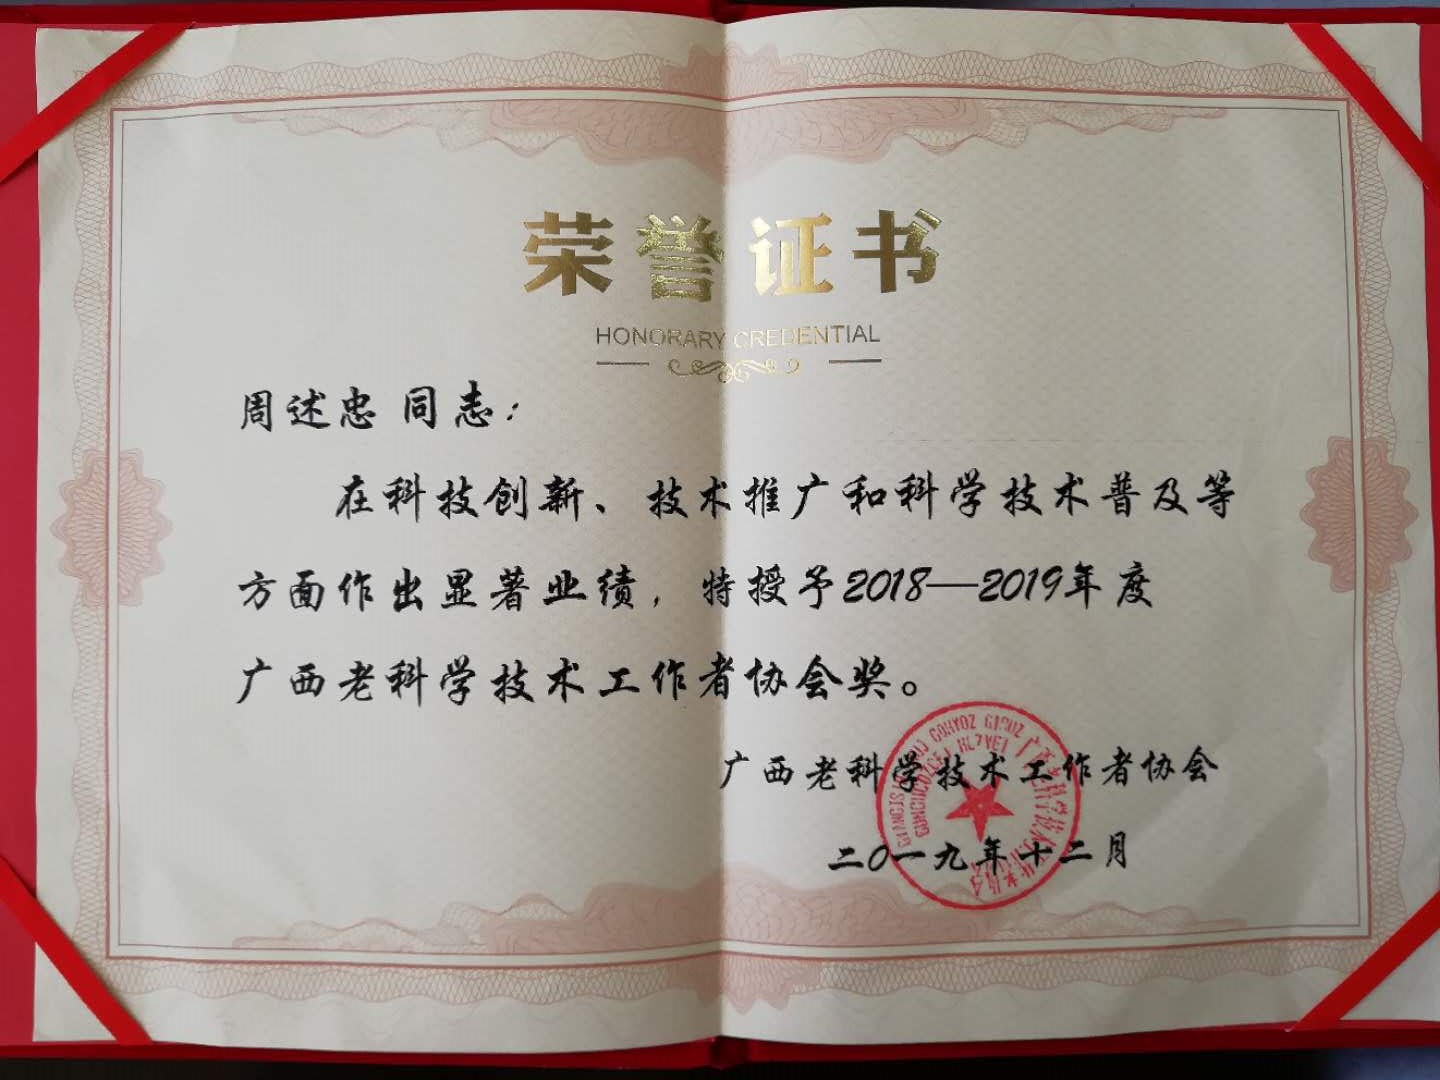 荣誉证书
HONORARY CREDENTIAL
周述忠 同志：
在科技创新、技术推广和科学技术普及等
方面作出显著业绩，特授予2018—2019年度
广西老科学技术工作者协会奖。
广西老科学技术工作者协会
二〇一九年十二月
广西老科学技术工作者协会